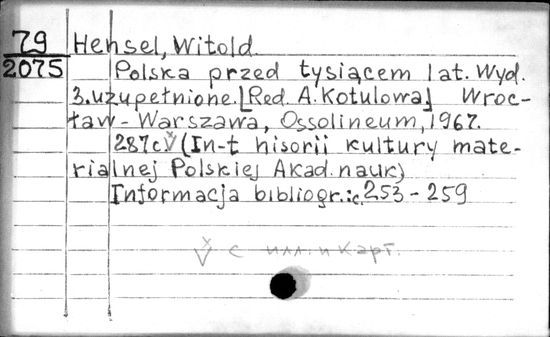 79 Hensel, Witold.
2075 Polska przed tysiącem lat. Wyd.
3. uzupełnione. [Red. A. Kotulowa] Wroc-
ław - Warszawa, Ossolineum, 1967.
287 c. V (In-t hisorii kultury mate-
rialnej Polskiej Akad. nauk)
Informacja bibliogr.: c. 253 - 259
V с илл. и карт.